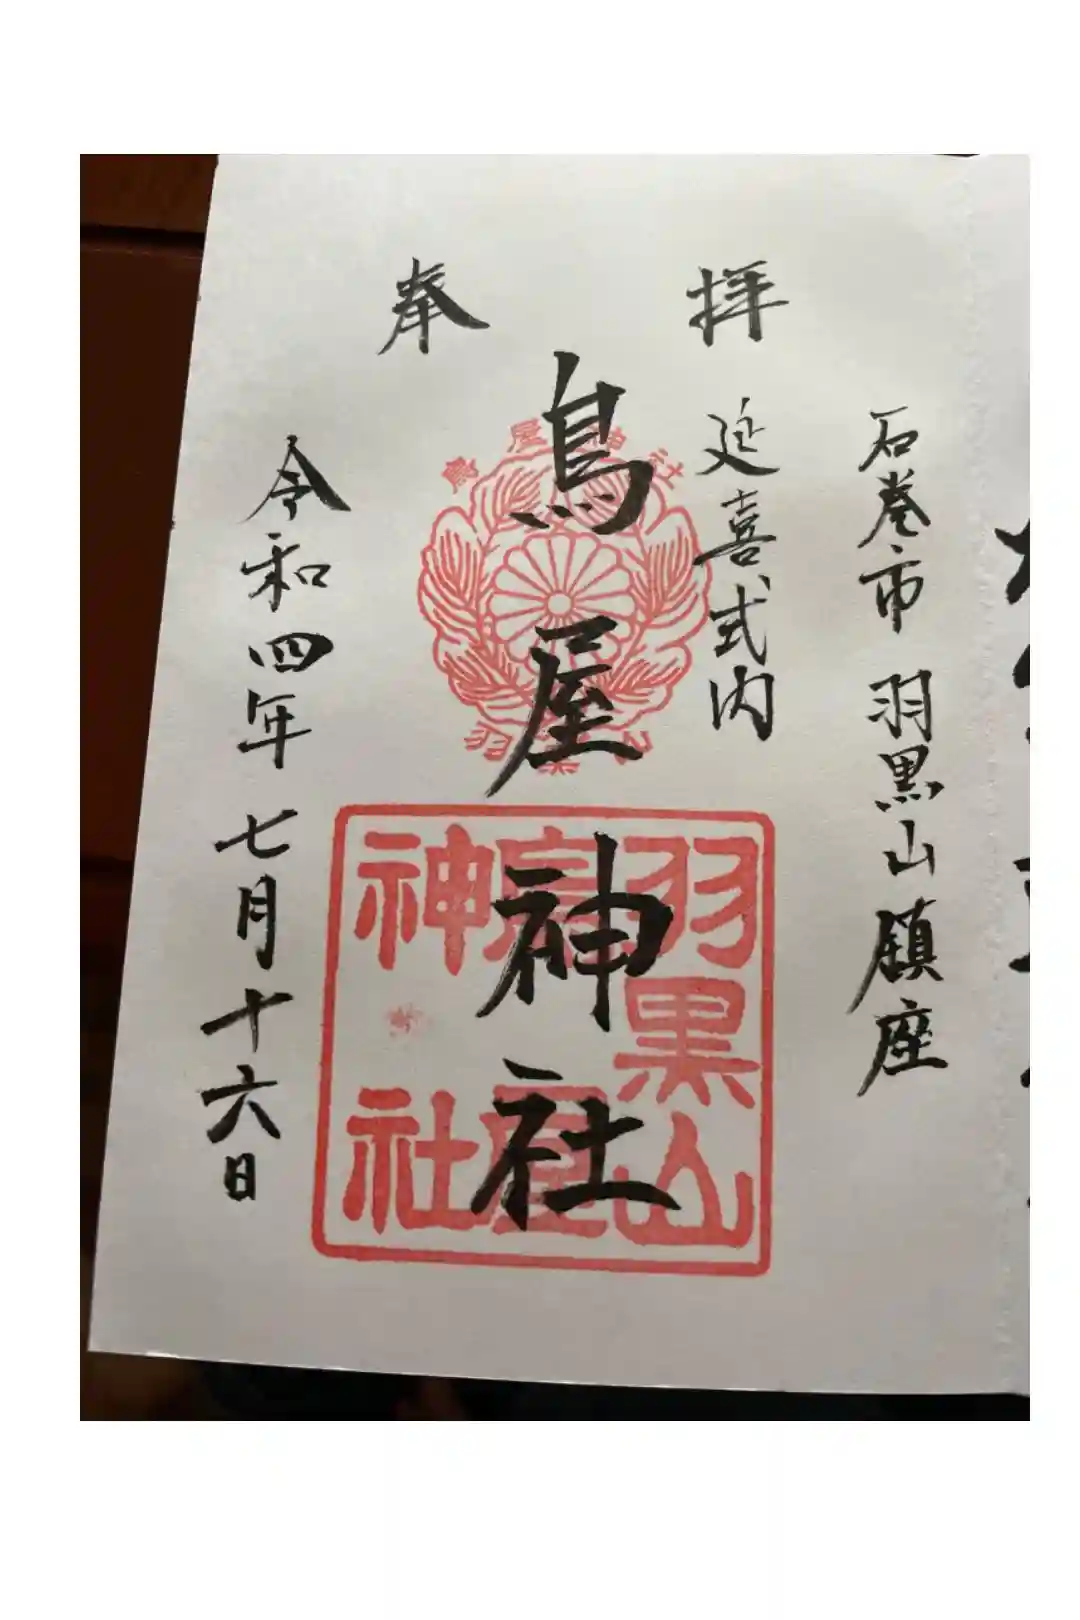 石巻市 羽黒山鎮座
奉拝
延喜式内
鳥屋神社
令和四年 七月十六日
鳥屋神社
羽黒山
羽黒山
鳥屋
神社